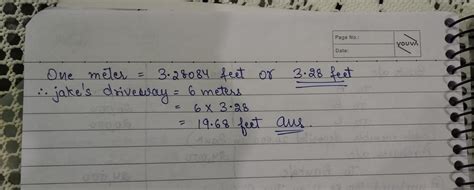 Page No.:
Date:
youva
One meter = 3.28084 feet or 3.28 feet
∴ jake's driveway = 6 meters
= 6 x 3.28
= 19.68 feet Ans.